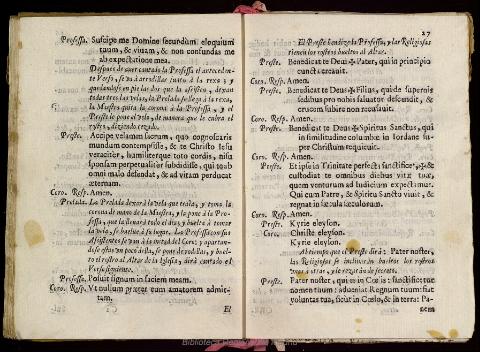 Professa. Suscipe me Domine secundùm eloquium
tuum, & vivam, & non confundas me
ab expectatione mea.
Despues de aver cantado la Professa el anteceden-
te Verso, se và à arrodillar junto à la rexa, y
quedandose en pie las dos que la assisten, dexan
todas tres las velas, la Prelada
la Mestra quita la corona à la Professa, y el
Preste le pone el velo, de manera que le cubra el
rostro, diziendo rezado.
Preste. Accipe velamen sacrum, quo cognoscaris
mundum contempsisse, & te Christo Iesu
veraciter, humiliterque toto cordis, nisu
sponsam perpetualiter subdidisse, qui te ab
omni malo defendat, & ad vitam perducat
æternam.
Coro. Resp. Amen.
Prelada. La Prelada dexarà la vela que tenia, y toma la
corona de mano de la Mestra, y la pone à la Pro-
fessa, que la llevarà todo el dia, y buelve à tomar
la vela, se buelve à su lugar. Las Professa con sus
Assistentes se van à la mitad del Coro; y apartan-
dose estas un poco de ella, se pone de rodillas, y buel-
to el rostro al Altar de la Iglesia, dirà cantado el
Verso siguiente.
Professa. Posuit signum in faciem meam.
Coro. Resp. Ut nullum præter eum amatorem admit-
tam.
El
27
El Preste bendize la Professa, y las Religiosas
tienen los rostros bueltos al Altar.
Preste. Benedicat te Deus ✠ Pater, qui in principio
cuncta creavit.
Coro. Resp. Amen.
Preste. Benedicat te Deus ✠ Filius, qui de supernis
sedibus pro nobis salvator descendit, &
crucem subire non recusavit.
Coro. Resp. Amen.
Preste. Benedicat te Deus ✠ Spiritus Sanctus, qui
in similitudine columbæ in Iordane su-
per Christum requievit.
Coro. Resp. Amen.
Preste. Et ipse in Trinitate perfecta sanctificet, ✠ &
custodiat te omnibus diebus vitæ tuæ,
quem venturum ad Iudicium expectamus.
Qui cum Patre, & Spiritu Sancto vivit, &
regnat in sæcula sæculorum.
Coro. Resp. Amen.
Preste. Kyrie eleyson.
Coro. Christe eleyson.
Kyrie eleyson.
Al tiempo que el Preste dirà: Pater noster,
las Religiosas se inclinaràn bueltos los rostros
unas à otras, y le rezaràn de secreto.
Preste. Pater noster, qui es in Cœlis: sanctificetur
nomen tuum: adveniat Regnum tuum: fiat
voluntas tua, sicut in Cœlo, & in terra: Pa-
nem